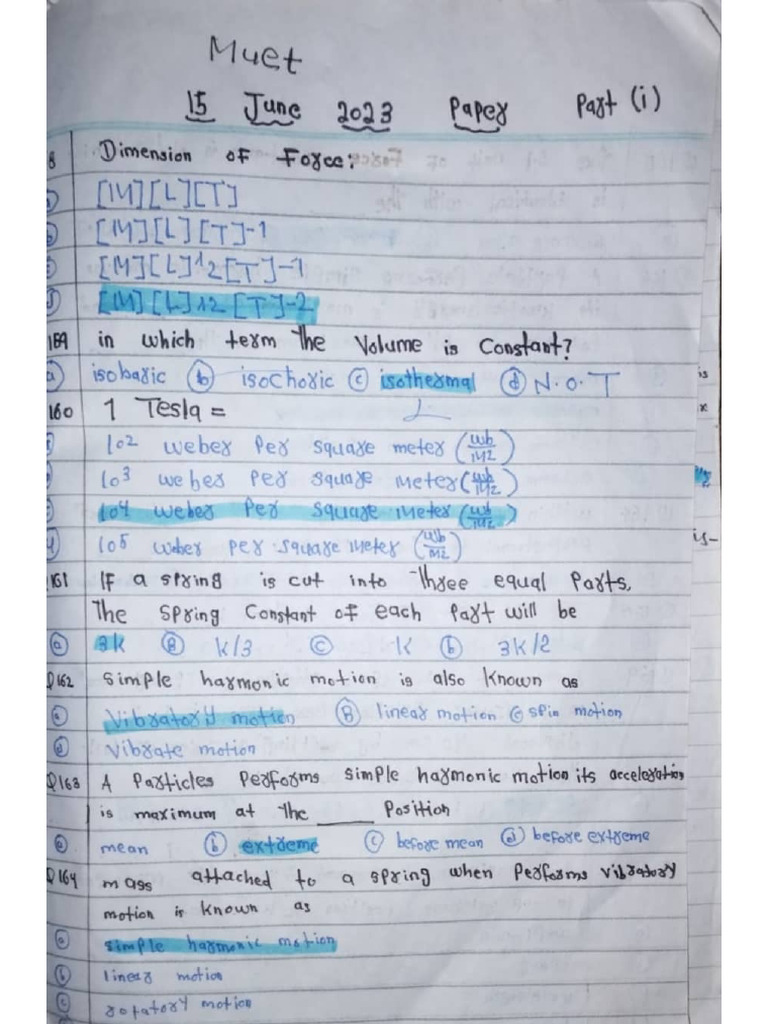 Muet
15 June 2023 Paper Part (i)
8 Dimension of Force:
[M][L][T]
b [M][L][T]-1
c [M][L]^2[T]-1
[M][L]^2[T]-2
159 in which term the Volume is Constant?
a isobaric b isochoric c isothermal d N.O.T
160 1 Tesla =
102 weber per square meter (wb/M2)
103 weber per square meter (wb/M2)
104 weber per square meter (wb/M2)
105 weber per square meter (wb/M2)
161 If a spring is cut into three equal parts.
The spring Constant of each part will be
a 3k B k/3 c k b 3k/2
Q162 simple harmonic motion is also known as
a Vibratory motion B linear motion c spin motion
d vibrate motion
Q163 A Particles Performs simple harmonic motion its acceleration
is maximum at the ____ Position
a mean b extreme c before mean d before extreme
Q164 mass attached to a spring when performs vibratory
motion is known as
a simple harmonic motion
b linear motion
c rotatory motion